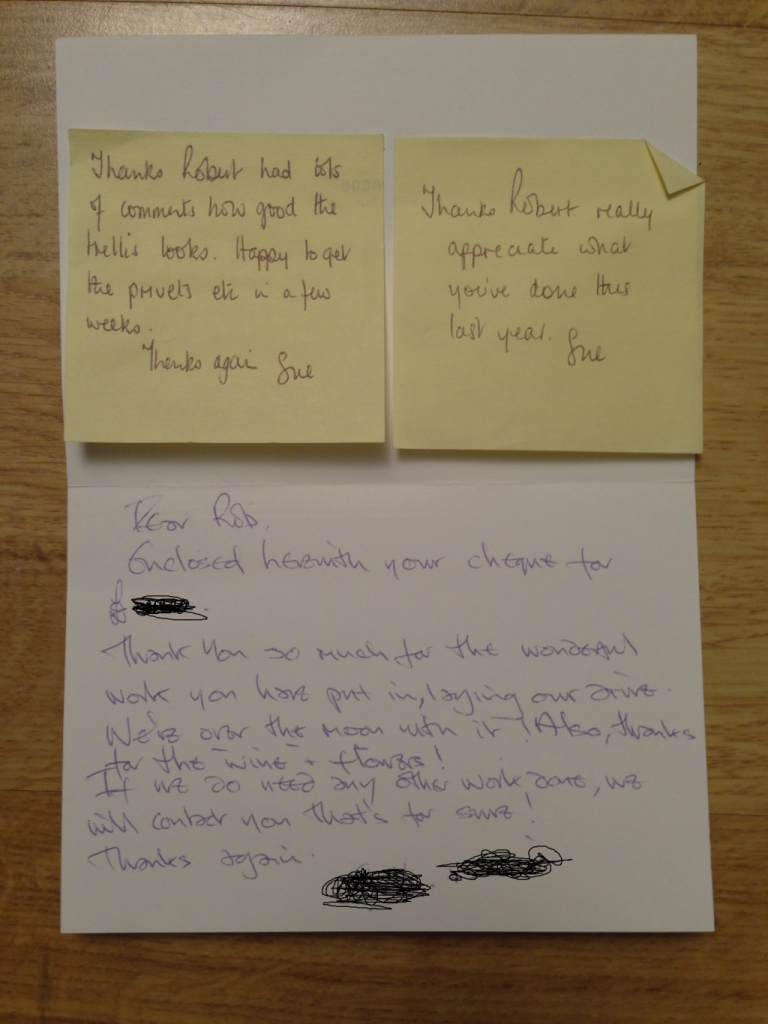 Thanks Robert had lots
of comments how good the
trellis looks. Happy to get
the privets etc in a few
weeks.
Thanks again Sue
Thanks Robert really
appreciate what
you've done this
last year. Sue
Dear Rob,
Enclosed herewith your cheque for
£
Thank you so much for the wonderful
work you have put in, laying our drive.
We're over the moon with it! Also, thanks
for the wine + flowers!
If we do need any other work done, we
will contact you that's for sure!
Thanks again.